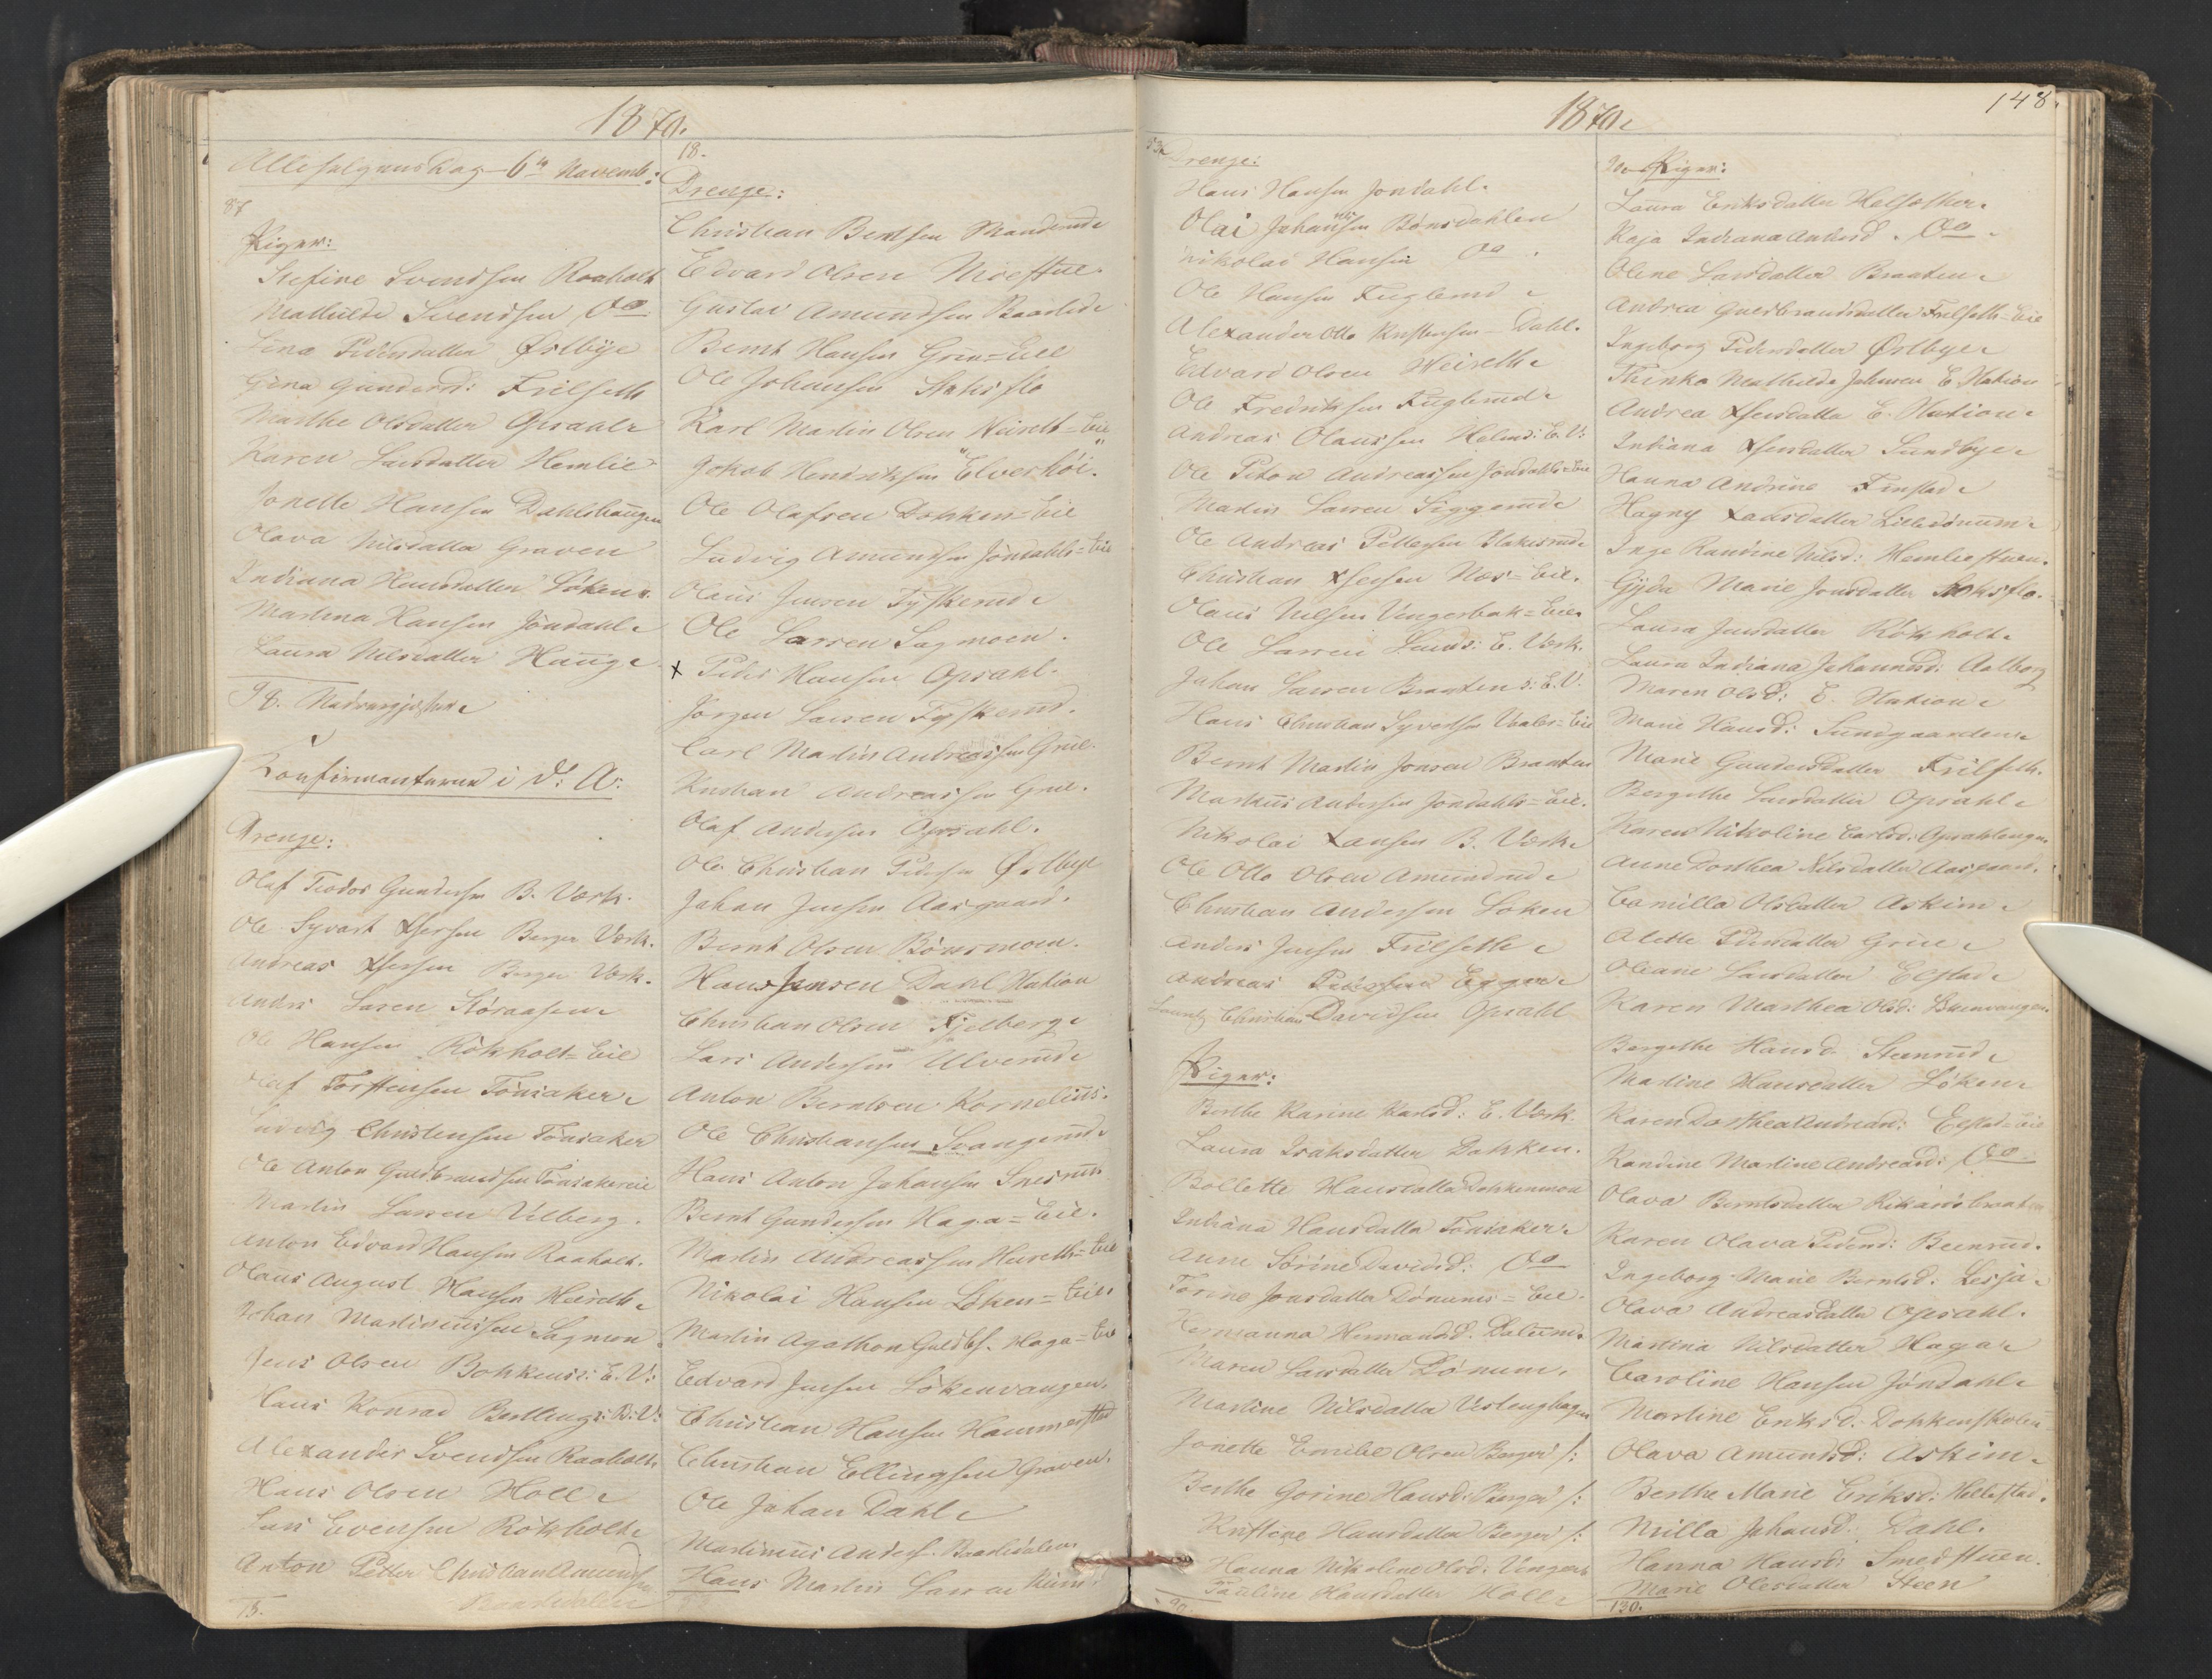 1870.
Allehelgensdag 6te Novemb:
87
Piger:
Stefine Svendsen Raaholt
Mathilde Svendsen Do
Lina Pedersdatter Østbye
Gina Gundersd: Frilseth
Marthe Olsdatter Opsahl
Karen Larsdatter Hemlie
Jonette Hansen Dahlshaugen
Olava Nilsdatter Graven
Indiana Hansdatter Løken
Martina Hansen Jöndahl
Laura Nilsdatter Haug
98.
Konfirmanterne i d: A:
Drenge:
Olaf Teodor Gundersen B. Værk.
Ole Syvart Ifversen Berger Værk.
Andreas Berger Værk.
Anders Larsen
Ole Hansen Rökholt-Eie
Olaf Torstensen Tönsaker
Ludvig Christensen Tönsaker
Ole Anton Guldbrandsen Tönsakereie
Martin Larsen Vilberg.
Anton Edvard Hansen Raaholt.
Olaus August Hansen Heireth
Johan Martinussen Sagmoen
Jens Olsen E. V:
Hans Konrad B. V:
Alexander Svendsen Raaholt
Hans Olsen Holl
Lars Evensen Rökholt
Anton Petter Christian Amundsen
Baardsdalen
15.
18.
Drenge:
Christian Berntsen
Edvard Olsen Moestue
Gustav Amundsen
Bernt Hansen Grue-Eie
Ole Johansen
Karl Martin Olsen Neireth-Eie
Jakob Hendriksen "Elverhöi."
Ole Olafsen Dokken-Eie
Ludvig Amundsen Jöndahls-Eie
Olaus Jensen Tyskerud
Ole Larsen Sagmoen.
x Peder Hansen Opsahl.
Jörgen Larsen Tyskerud.
Carl Martin Andreassen Grue.
Kristian Andreassen Grue.
Olaf Andersen Opsahl.
Ole Christian Pedersen Østbye
Johan Jensen Aasgaard.
Bernt Olsen Bönsmoen.
Hans Jensen Dahl Station
Christian Olsen Fjelberg
Lars Andersen Ulverud
Anton Berntsen Kornelius.
Ole Christiansen Svangerud
Hans Anton Johansen
Bernt Gundersen Haga-Eie.
Martin Andreassen Heireth-Eie
Nikolai Hansen Löken-Eie
Martin Agathon Guldbs. Haga-Eie
Edvard Jensen Lökenvangen.
Christian Hansen Hammerstad
Christian Ellingsen Graven.
Ole Johan Dahl
Martinius Anders. Baardsdalen
Hans Martin Larsen
1870.
148.
53
Drenge:
Hans Hansen Jondahl.
Olai Johansen Bönsdahlen
Nikolai Hansen Do.
Ole Hansen Fuglerud
Alexander Otto Kristensen Dahl.
Edvard Olsen Heireth
Ole Fredriksen Fuglerud
Andreas Olaussen E. V:
Ole Peter Andreassen Jondahls-Eie
Martin Larsen Siggerud
Ole Andreas Pettersen Blakisrud
Christian Næs-Eie.
Olaus Nilsen Vengerbak-Eie
Ole Larsen E. Værk.
Johan Larsen Braaten E. V.
Hans Christian Syvertsen Eie
Bernt Martin Jonsen Braaten
Markus Andersen Jöndahls-Eie.
Nikolai Hansen B. Værk
Ole Otto Olsen Amundrud
Christian Andersen Löken
Anders Jensen Frilseth
Andreas Egger
Lauritz Christian Davidsen Opsahl
Piger:
Berthe Karine Karlsd: E. Værk.
Laura Isaksdatter Dokken.
Bollette Hansdatter Dokkenmoen
Indiana Hansdatter Tönsaker
Anne Sörine Davidsd: Do
Torine Jonsdatter Dönnums-Eie.
Hermanna Hermandsd.
Maren Larsdatter Dönnum.
Martine Nilsdatter Vestengshagen
Jonette Emilie Olsen Berger
Berthe Gorine Hansd: Berger
Kristine Hansdatter Berger
Hanna Nikoline Olsd: Venger
Pauline Hansdatter Holl
90.
90. Piger:
Laura Eriksdatter
Kaja Indiana Andersd. Do.
Oline Larsdatter Braaten
Andrea Guldbrandsdatter Frilseth-Eie
Ingeborg Pedersdatter Østbye
Thinka Mathilde Johnsen E. Station
Andrea E. Station
Indiana Sundbye
Hanna Andrine Finstad
Hagny Larsdatter Lilledönnum
Inge Randine Nilsd: Hemliestuen.
Gyda Marie Jonsdatter
Laura Jensdatter Rökholt
Laura Indiana Johannesd: Aalborg
Maren Olsd: E. Station
Marie Hansd: Sundgaarden
Marie Gundersdatter Frilseth.
Bergethe Larsdatter Opsahl
Karen Nikoline Carlsd: Opsahlengen
Anne Dorthea Nilsdatter Aasgaard.
Camilla Olsdatter Askim
Alette Pedersdatter Grue
Oleane Larsdatter Elstad
Karen Marthea Olsd:
Bergethe Hansd. Steenrud
Martine Hansdatter Löken
Karen Dorthea Andreasd: Elstad-Eie
Randine Martine Andreasd: Do
Olava Berntsdatter Rikardsbraaten
Karen Olava Pedersd: Beenrud.
Ingeborg Marie Berntsd: Lesja
Olava Andreasdatter Opsahl.
Martina Nilsdatter Haga
Caroline Hansen Jöndahl
Martine Eriksd: Dokkenskolen
Olava Amundsd: Askim
Berthe Marie Eriksd: Hellestad.
Milla Johansd: Dahl.
Hanna Hansd: Smedstuen.
Marie Olesdatter Steen
130.